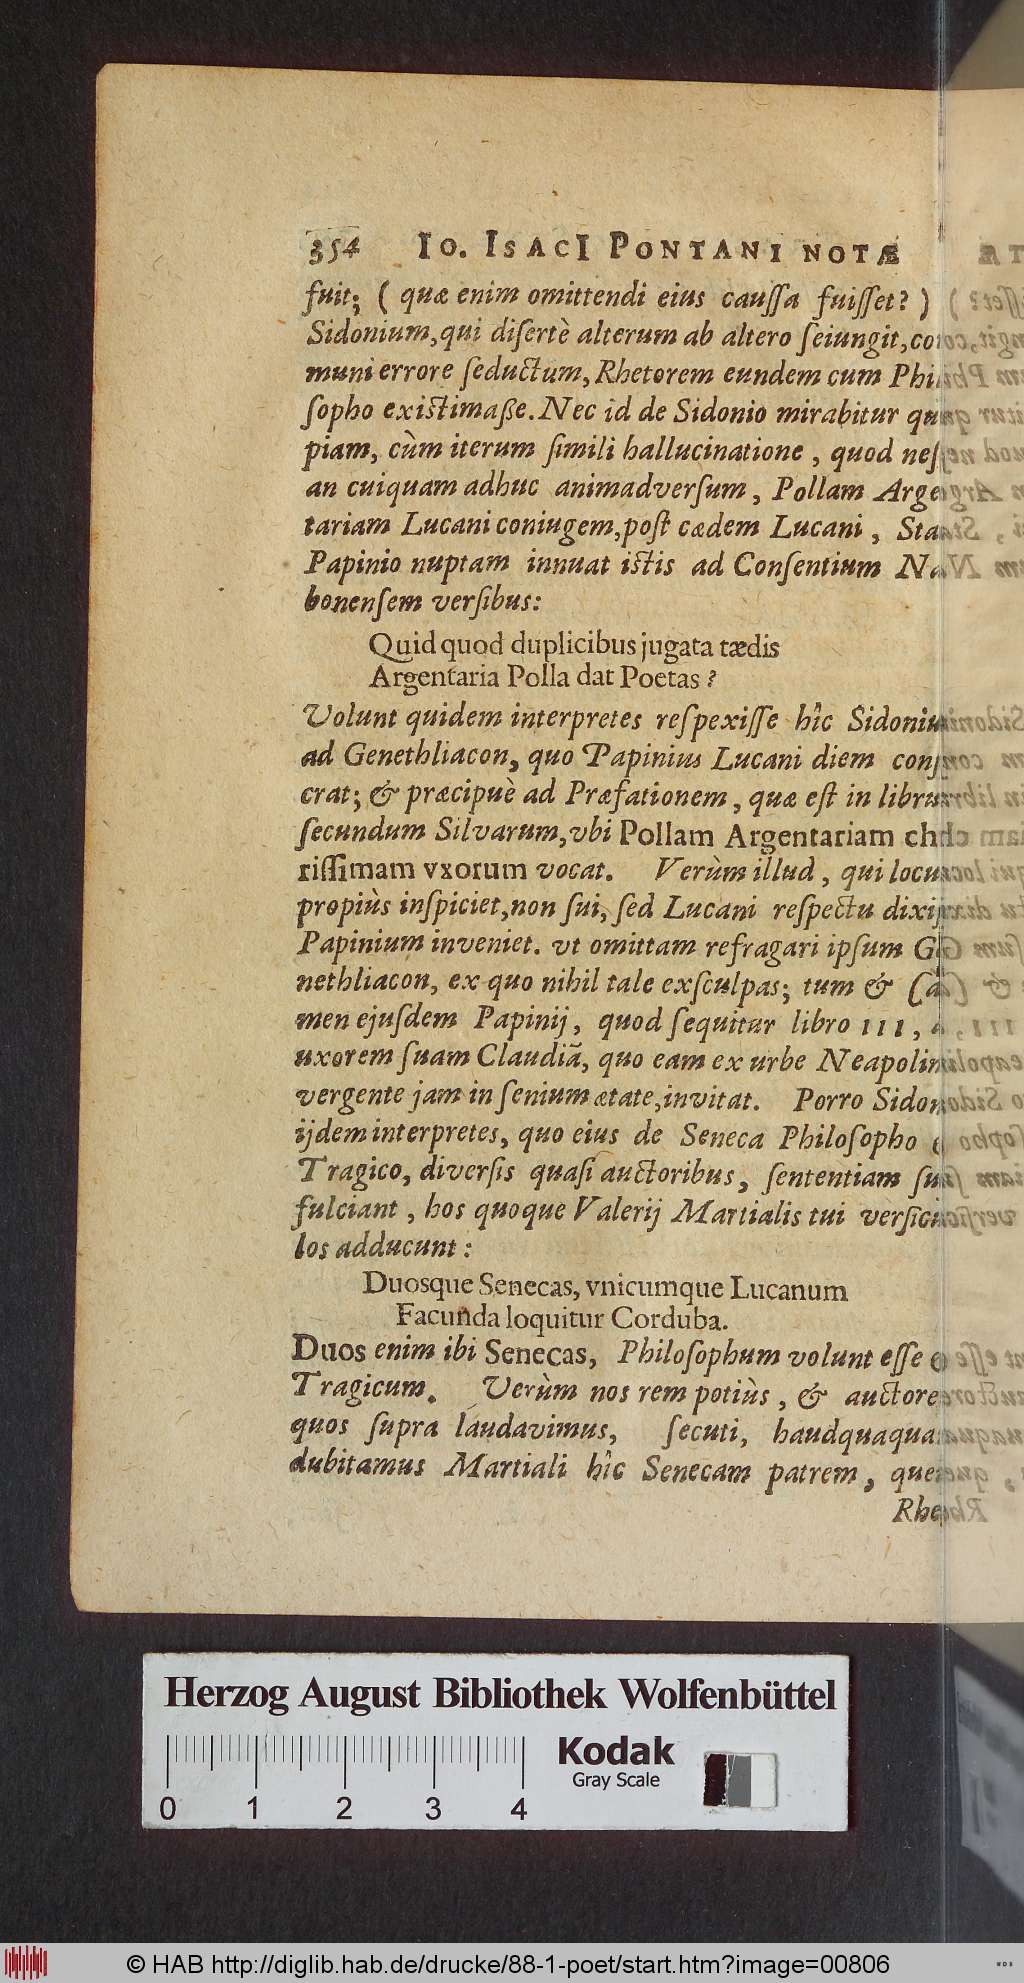 354 IO. ISACI PONTANI NOTÆ
fuit; ( quæ enim omittendi eius caussa fuisset? )
Sidonium, qui disertè alterum ab altero seiungit, co
muni errore seductum, Rhetorem eundem cum Phi
sopho existimaße. Nec id de Sidonio mirabitur
piam, cùm iterum simili hallucinatione, quod nes
an cuiquam adhuc animadversum, Pollam Arge
tariam Lucani coniugem, post cædem Lucani, Sta
Papinio nuptam innuat istis ad Consentium Na
bonensem versibus:
Quid quod duplicibus jugata tædis
Argentaria Polla dat Poetas?
Volunt quidem interpretes respexisse hîc Sidoniu
ad Genethliacon, quo Papinius Lucani diem cons
crat; & præcipuè ad Præfationem, quæ est in libru
secundum Silvarum, vbi Pollam Argentariam
rissimam vxorum vocat. Verùm illud, qui locu
propiùs inspiciet, non sui, sed Lucani respectu dixi
Papinium inveniet. vt omittam refragari ipsum G
nethliacon, ex quo nihil tale exsculpas; tum & (
men ejusdem Papinij, quod sequitur libro III,
uxorem suam Claudiã, quo eam ex urbe Neapolim
vergente jam in senium ætate, invitat. Porro Sidon
ijdem interpretes, quo eius de Seneca Philosopho
Tragico, diversis quasi auctoribus, sententiam su
fulciant, hos quoque Valerij Martialis tui versicu
los adducunt:
Duosque Senecas, vnicumque Lucanum
Facunda loquitur Corduba.
Duos enim ibi Senecas, Philosophum volunt esse
Tragicum. Verùm nos rem potiùs, & auctore
quos supra laudavimus, secuti, haudquaqua
dubitamus Martiali hîc Senecam patrem, que
Rhe
Herzog August Bibliothek Wolfenbüttel
Kodak
Gray Scale
0 1 2 3 4
© HAB http://diglib.hab.de/drucke/88-1-poet/start.htm?image=00806